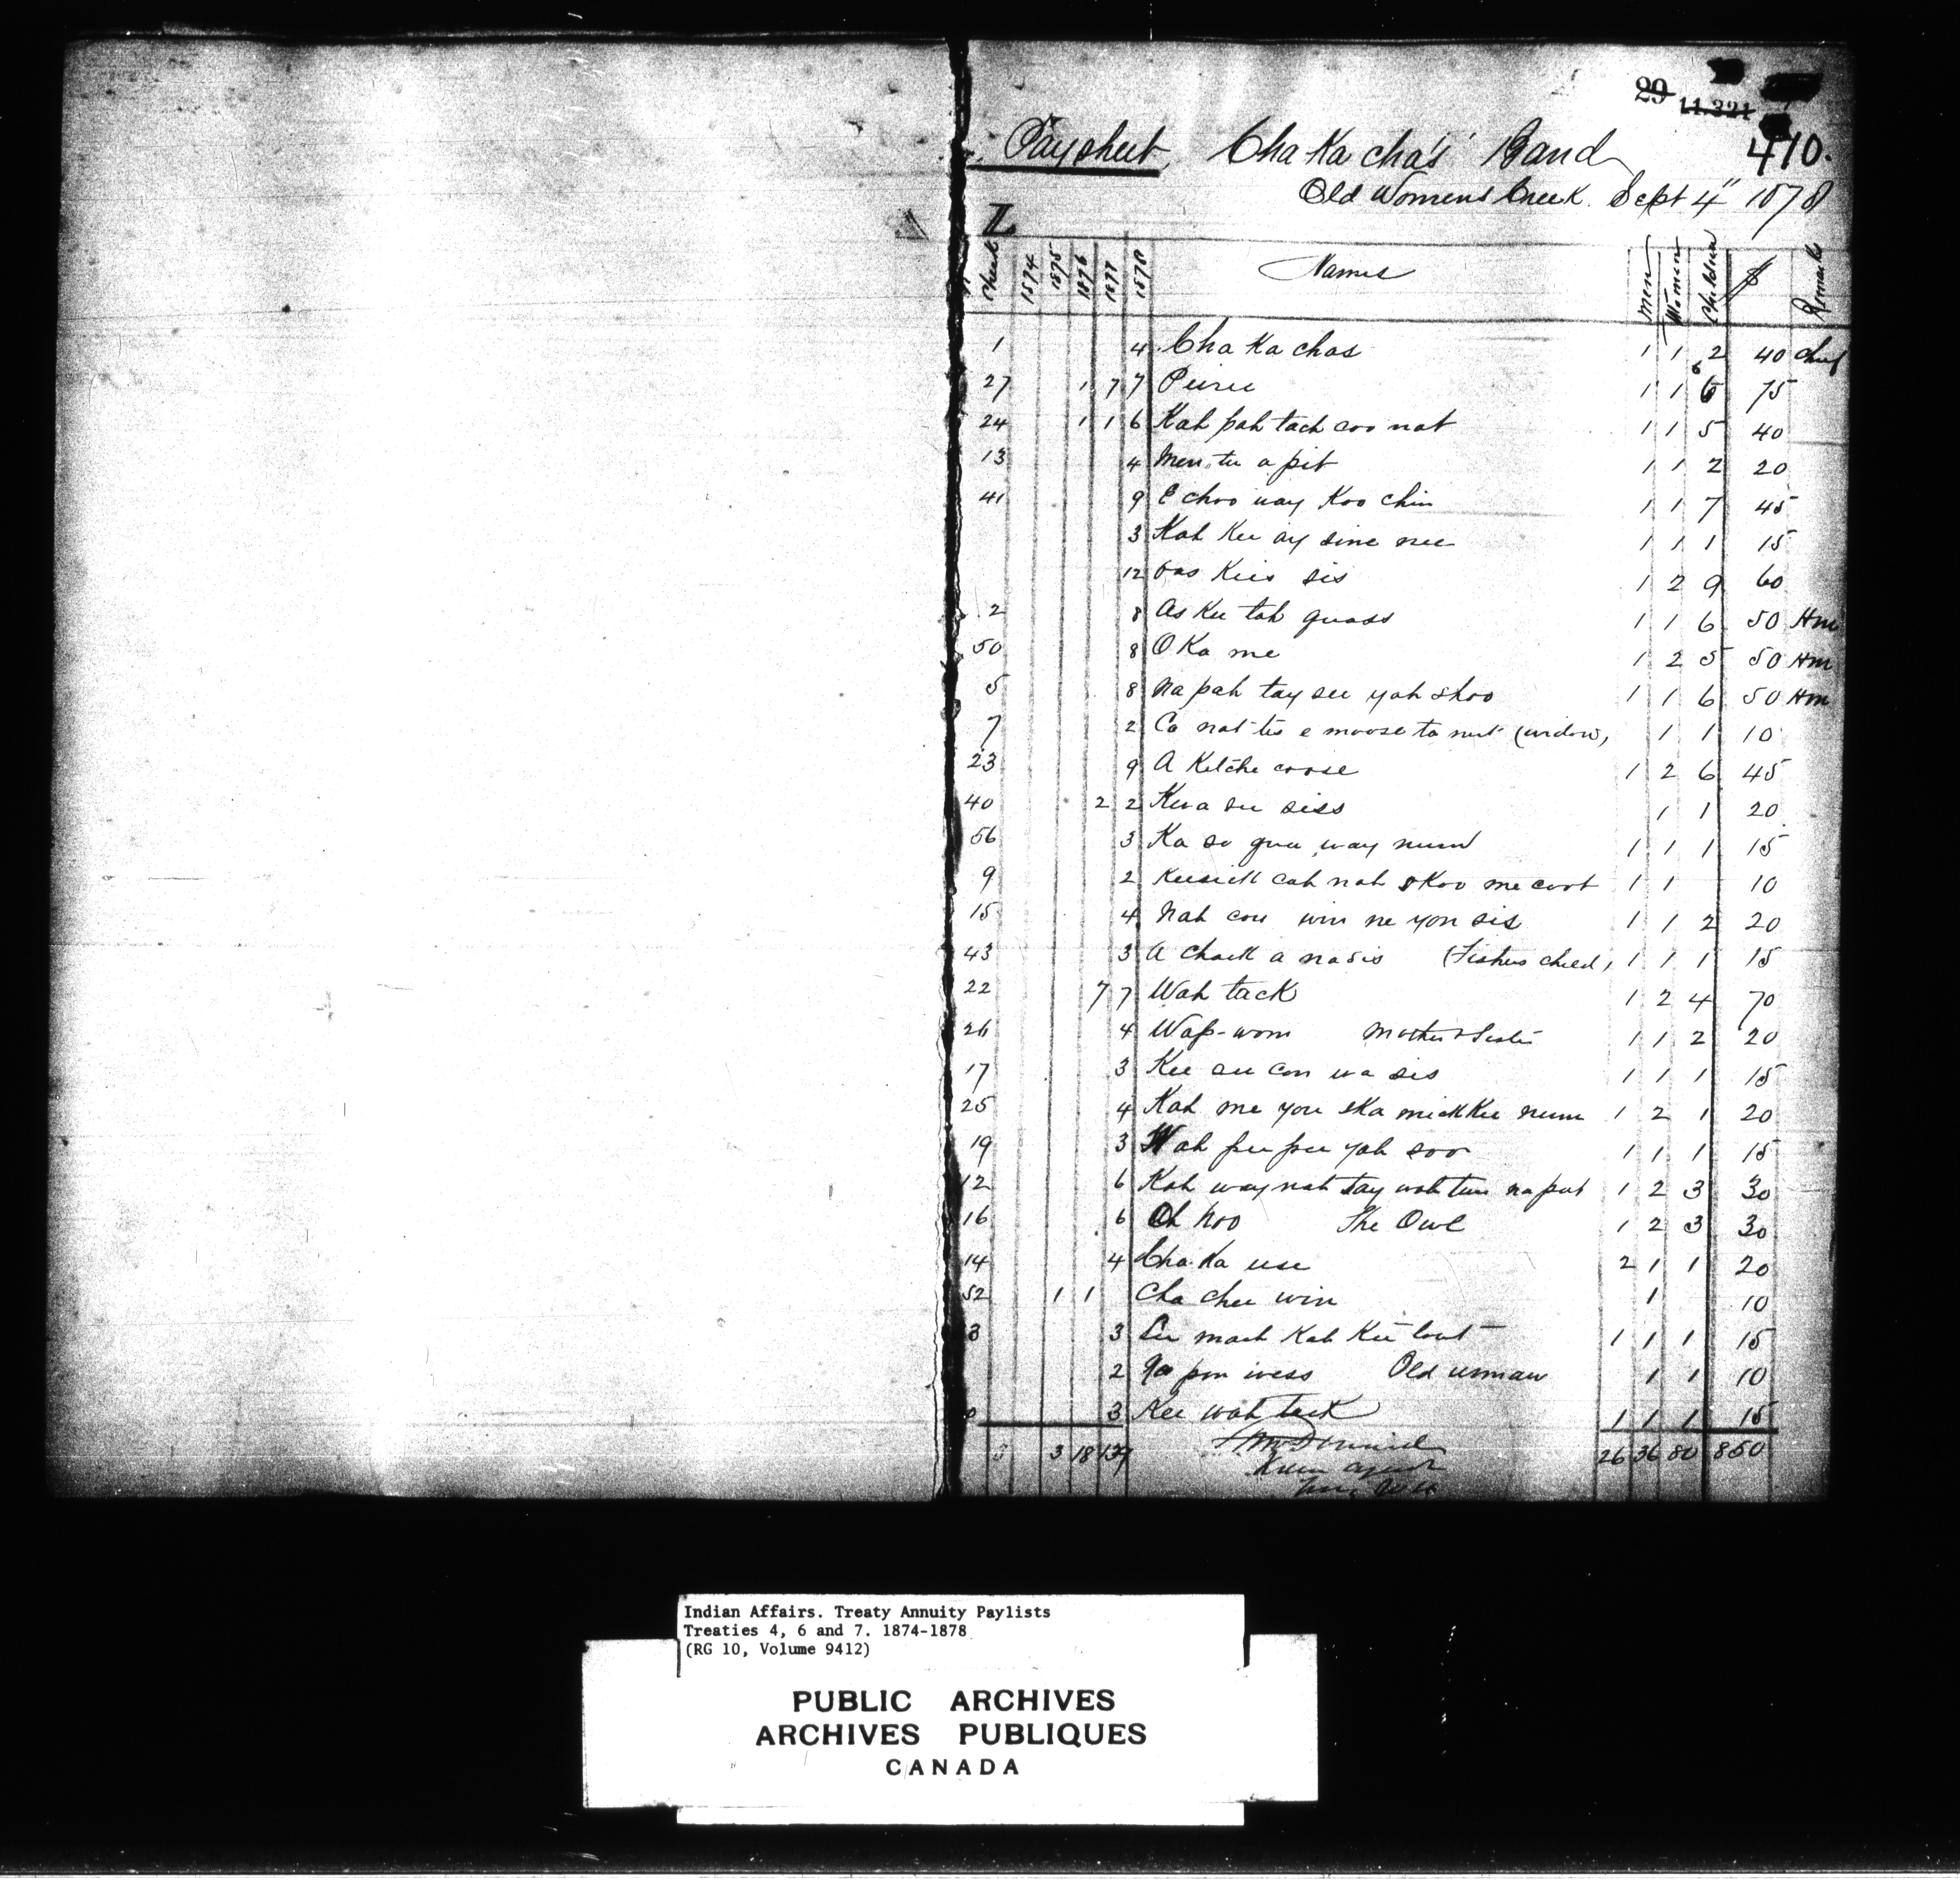 29
11.321
410.
Paysheet. Cha Ka cha's Band
Old Womens Creek. Sept 4" 1878
No Check 1874 1875 1876 1877 1878 Names Men Women Children $ Remarks
1 4 Cha Ka chas 1 1 2 40 Chief
27 1 7 7 1 1 6 75
24 1 1 6 Kah pah tach coo nat 1 1 5 40
13 4 Men tu a pit 1 1 2 20
41 9 E choo way Koo chin 1 1 7 45
3 Kah Kee ay sine nee 1 1 1 15
12 Oos Kiis sis 1 2 9 60
2 8 As Kee tah quass 1 1 6 50 Hm
50 8 O Ka me 1 2 5 50 Hm
5 8 Na pah tay see yah shoo 1 1 6 50 Hm
7 2 Ca nat tis e moose ta nut (widow) 1 1 10
23 9 A Ketche coose 1 2 6 45
40 2 2 Kwa see siss 1 1 20
56 3 Ka so guu way num 1 1 1 15
9 2 Keesick cah nah skoo me coot 1 1 10
15 4 Nah cou win ne yon sis 1 1 2 20
43 3 A chack a nasis (Fishers child) 1 1 1 15
22 7 7 Wah tack 1 2 4 70
26 4 Wap-wom Mother & Sister 1 1 2 20
17 3 Kee see con wa sis 1 1 1 15
25 4 Kah me you ska mick kee num 1 2 1 20
19 3 Wah pee pee yah soo 1 1 1 15
12 6 Kah way nah tay wah tum na put 1 2 3 30
16 6 Oh hoo The Owl 1 2 3 30
14 4 Cha Ka use 2 1 1 20
52 1 1 Cha chee win 1 10
3 3 See mach Kah Kee tout 1 1 1 15
2 pom wess Old woman 1 1 10
3 Kee wah tack 1 1 1 15
3 18 137 26 36 80 850
Indian Affairs. Treaty Annuity Paylists
Treaties 4, 6 and 7. 1874-1878
(RG 10, Volume 9412)
PUBLIC ARCHIVES
ARCHIVES PUBLIQUES
CANADA